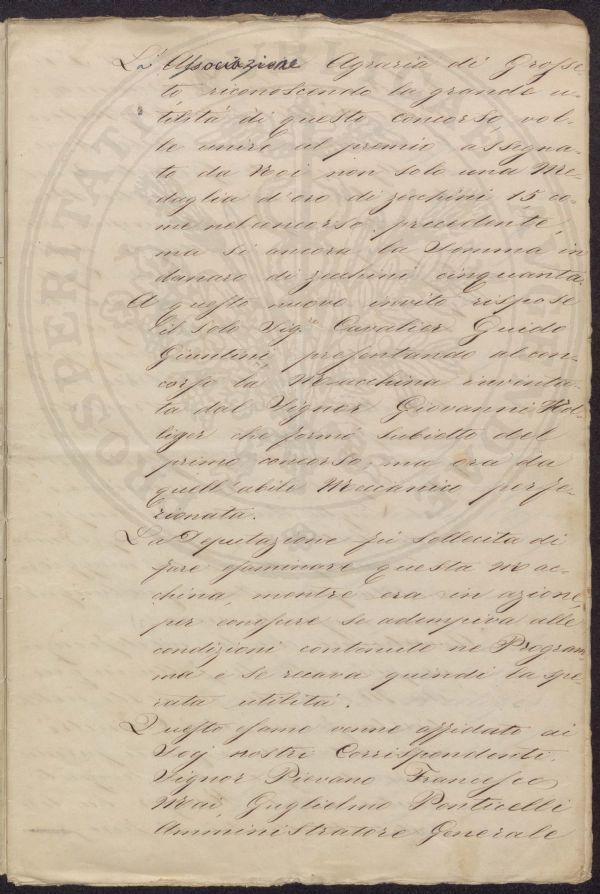 L'Associazione Agraria di Grosse-
to riconoscendo la grande u-
tilità di questo concorso vol-
le unire al premio assegna-
to da Noi non solo una Me-
daglia d'oro di zecchini 15 co-
me nel ancorso precedente,
ma si ancora la Somma in
danaro di zecchini cinquanta.
A questo nuovo invito rispose
il solo Sig.r Cavalier Guido
Giuntini, presentando al con-
corso la Macchina inventa-
ta dal Signor Giovanni
che formò subietto del
primo concorso, ma ora da
quell'abile Meccanico perfe-
zionata.
La Deputazione fu sollecita di
fare esaminare questa Mac-
china, mentre era in azione,
per conoscere se adempiva alle
condizioni contenute ne Program-
ma e se recava quindi la spe-
rata utilità.
Questo esame venne affidato ai
Socj nostri Corrispondenti,
Signor Pievano Francesco
Mai, Guglielmo Ponticelli
Amministratore Generale
PROSPERITATI PUBLICAE AUGENDAE